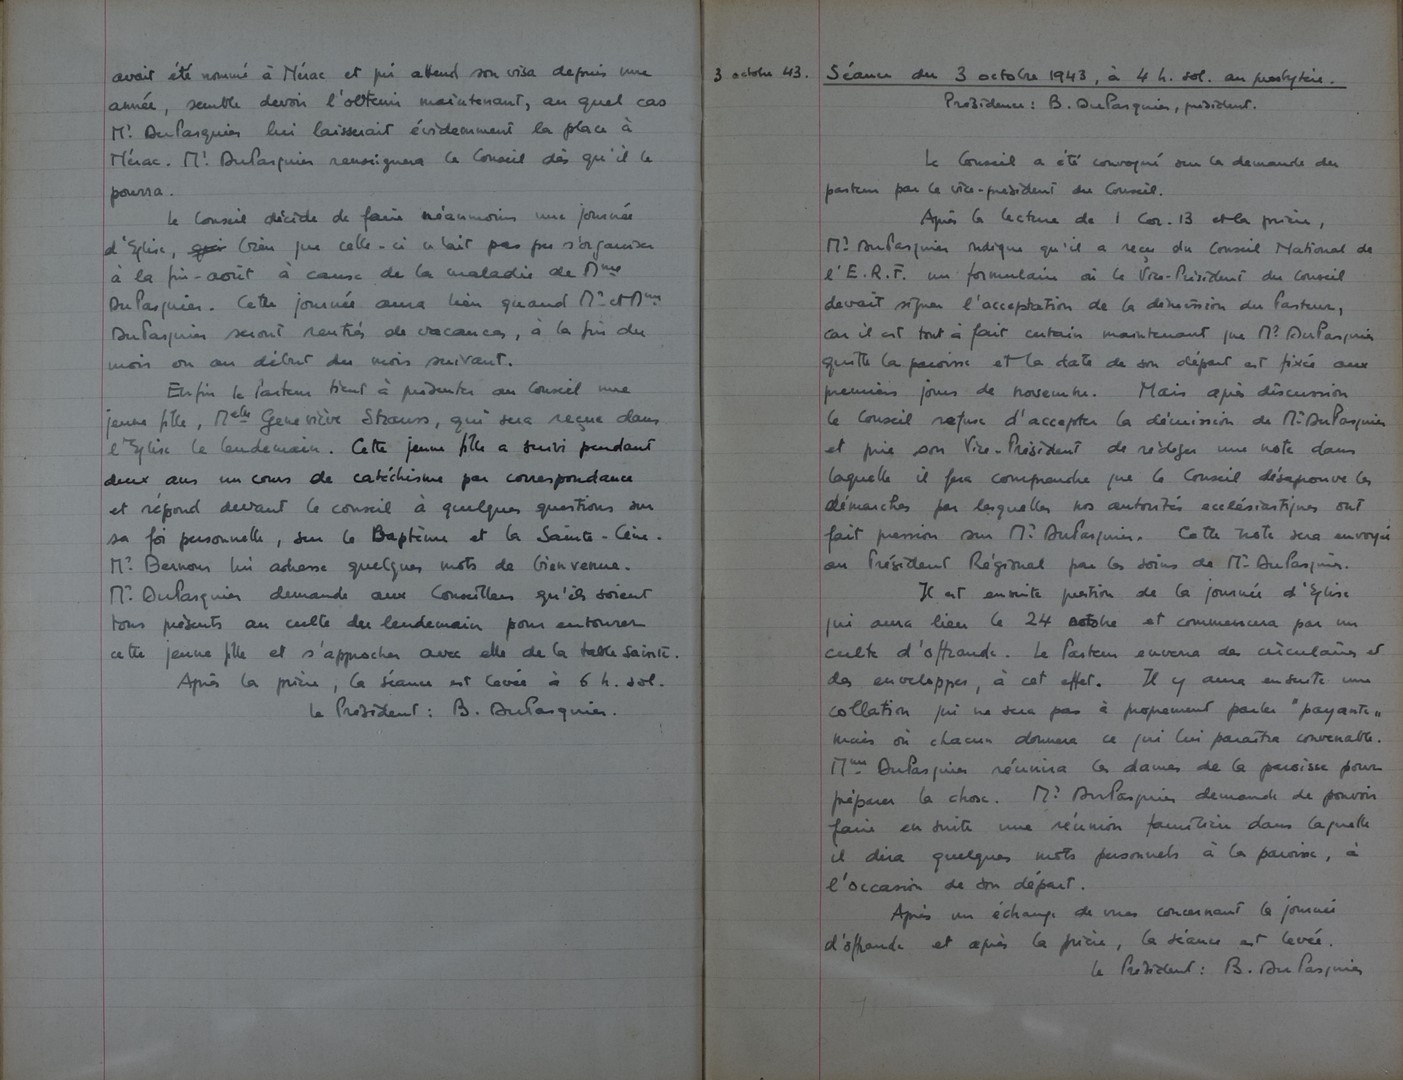 avait été nommé à Nérac et qui attend son visa depuis une
année, semble devoir l'obtenir maintenant, au quel cas
Mr. DuPasquier lui laisserait évidemment la place à
Nérac. Mr. DuPasquier renseignera le Conseil dès qu'il le
pourra.
Le Conseil décide de faire néanmoins une journée
d'Eglise, bien que celle-ci n'ait pas pu s'organiser
à la fin-août à cause de la maladie de Mme
DuPasquier. Cette journée aura lieu quand Mr. et Mme
DuPasquier seront rentrés de vacances, à la fin du
mois ou au début du mois suivant.
Enfin le Pasteur tient à présenter au Conseil une
jeune fille, Melle Geneviève Strauss, qui sera reçue dans
l'Eglise le lendemain. Cette jeune fille a suivi pendant
deux ans un cours de catéchisme par correspondance
et répond devant le conseil à quelques questions sur
sa foi personnelle, sur le Baptême et la Sainte-Cène.
Mr. Bernon lui adresse quelques mots de bienvenue.
Mr. DuPasquier demande aux Conseillers qu'ils soient
tous présents au culte du lendemain pour entourer
cette jeune fille et s'approcher avec elle de la table sainte.
Après la prière, la séance est levée à 6 h. sol.
Le Président : B. DuPasquier.
3 octobre 43.
Séance du 3 octobre 1943, à 4 h. sol. au presbytère.
Présidence : B. DuPasquier, président.
Le Conseil a été convoqué sur la demande du
pasteur par le vice-président du Conseil.
Après la lecture de 1 Cor. 13 et la prière,
Mr. DuPasquier indique qu'il a reçu du Conseil National de
l'E.R.F. un formulaire où le Vice-Président du Conseil
devait signer l'acceptation de la démission du Pasteur,
car il est tout à fait certain maintenant que Mr. DuPasquier
quitte la paroisse et la date de son départ est fixée aux
premiers jours de novembre. Mais après discussion
le Conseil refuse d'accepter la démission de Mr. DuPasquier
et prie son Vice-Président de rédiger une note dans
laquelle il fera comprendre que le Conseil désapprouve les
démarches par lesquelles nos autorités ecclésiastiques ont
fait pression sur Mr. DuPasquier. Cette note sera envoyée
au Président Régional par les soins de Mr. DuPasquier.
Il est ensuite question de la journée d'Eglise
qui aura lieu le 24 octobre et commencera par un
culte d'offrande. Le Pasteur enverra des circulaires et
des enveloppes, à cet effet. Il y aura ensuite une
collation qui ne sera pas à proprement parler "payante"
mais où chacun donnera ce qui lui paraîtra convenable.
Mme DuPasquier réunira les dames de la paroisse pour
préparer la chose. Mr. DuPasquier demande de pouvoir
faire ensuite une réunion familière dans laquelle
il dira quelques mots personnels à la paroisse, à
l'occasion de son départ.
Après un échange de vues concernant la journée
d'offrande et après la prière, la séance est levée.
Le Président : B. DuPasquier